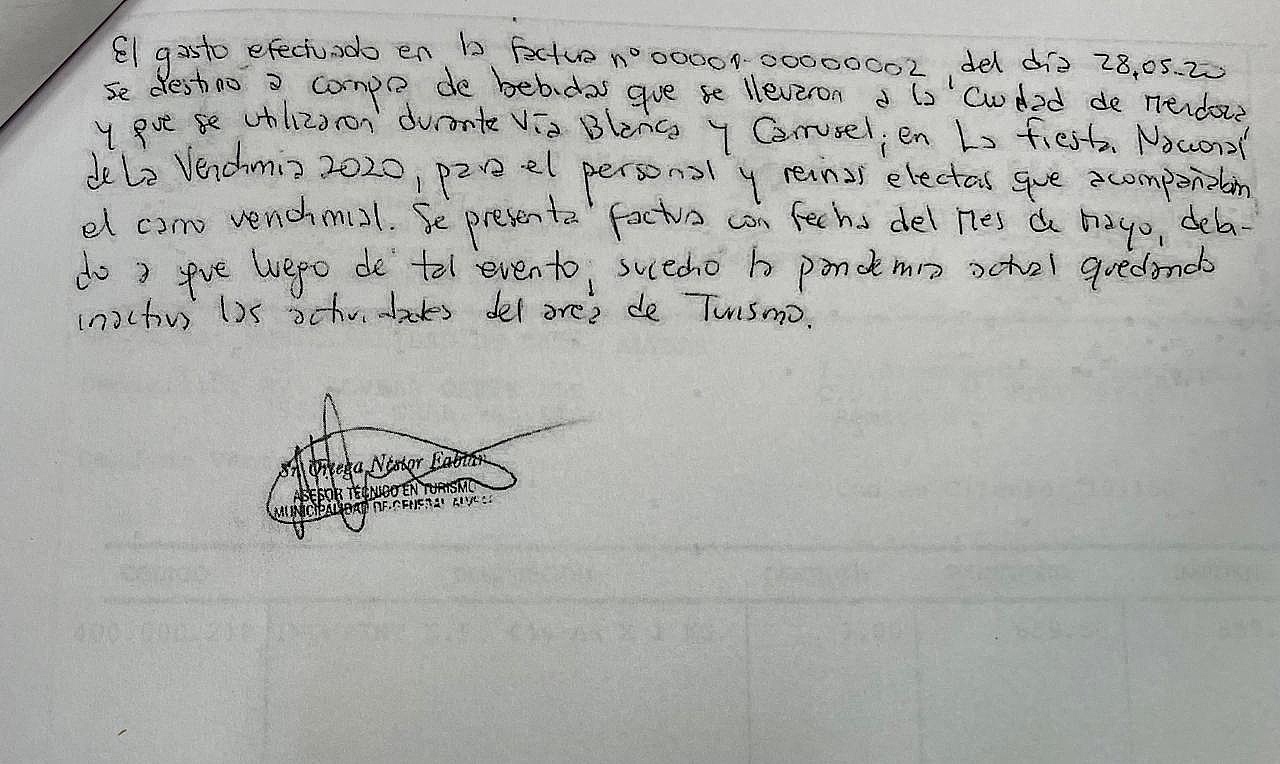 El gasto efectuado en la factura nº 00001-00000002, del día 28.05.20
se destino a compra de bebidas que se llevaron a la Ciudad de Mendoza
y que se utilizaron durante Vía Blanca y Carrusel, en La fiesta Nacional
de La Vendimia 2020, para el personal y reinas electas que acompañaban
el carro vendimial. Se presenta factura con fecha del Mes de Mayo, debi-
do a que luego de tal evento, sucedio la pandemia actual quedando
inactivas las actividades del area de Turismo.
Sr. Ortega, Néstor Fabián
ASESOR TÉCNICO EN TURISMO
MUNICIPALIDAD DE GENERAL ALVEAR